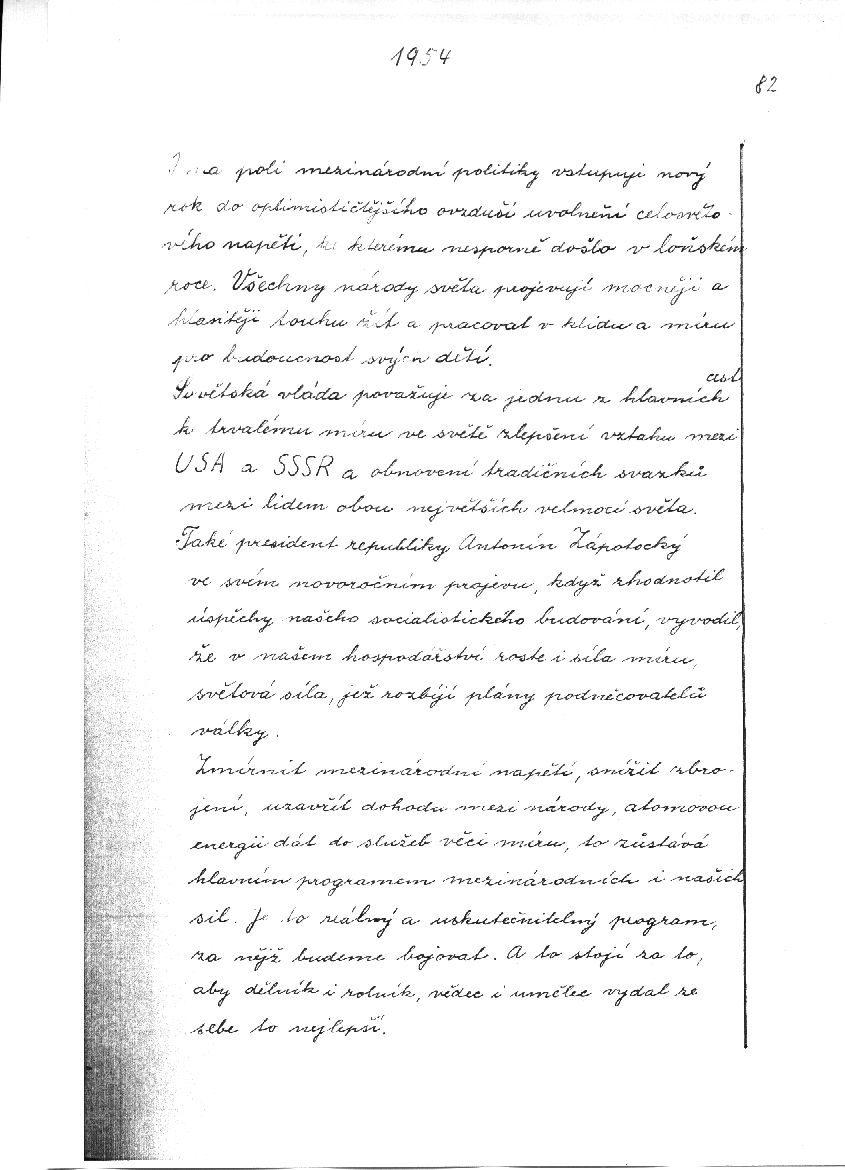 1954
82
I na poli mezinárodní politiky vstupuji nový
rok do optimističtějšího ovzduší uvolnění celosvěto-
vého napětí, ke kterému nesporně došlo v loňském
roce. Všechny národy světa projevují mocněji a
hlasitěji touhu žít a pracovat v klidu a míru
pro budoucnost svých dětí.
cest
Sovětská vláda považuje za jednu z hlavních
k trvalému míru ve světě zlepšení vztahu mezi
USA a SSSR a obnovení tradičních svazků
mezi lidem obou největších velmocí světa.
Také president republiky Antonín Zápotocký
ve svém novoročním projevu, když zhodnotil
úspěchy našeho socialistického budování, vyvodil,
že v našem hospodářství roste i síla míru,
světová síla, jež rozbíjí plány podněcovatelů
války.
Zmírnit mezinárodní napětí, snížit zbro-
jení, uzavřít dohodu mezi národy, atomovou
energii dát do služeb věci míru, to zůstává
hlavním programem mezinárodních i našich
sil. Je to reálný a uskutečnitelný program,
za nějž budeme bojovat. A to stojí za to,
aby dělník i rolník, vědec i umělec vydal ze
sebe to nejlepší.